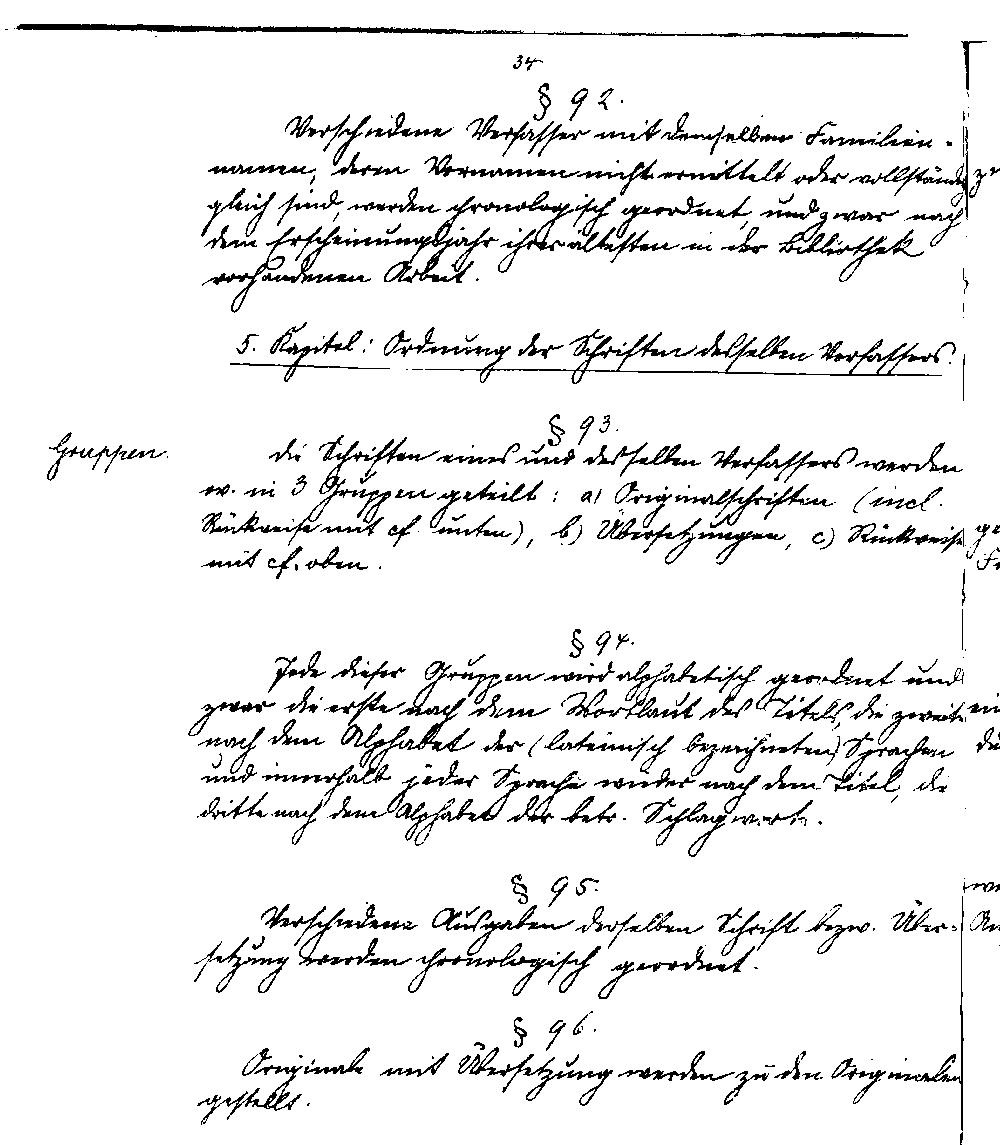 34
§ 92.
Verschiedene Verfasser mit demselben Familien-
namen, deren Vornamen nicht ermittelt oder vollständig
gleich sind, werden chronologisch geordnet, und zwar nach
dem Erscheinungsjahr ihrer ältesten in der Bibliothek
vorhandenen Arbeit.
5. Kapitel: Ordnung der Schriften desselben Verfassers.
§ 93.
Gruppen.
die Schriften eines und desselben Verfassers werden
ev. in 3 Gruppen geteilt: a) Originalschriften (incl.
Rückweise mit cf. unten), b) Übersetzungen, c) Rückweise
mit cf. oben.
§ 94.
Jede dieser Gruppen wird alphabetisch geordnet und
zwar die erste nach dem Wortlaut des Titels, die zweite
nach dem Alphabet der (lateinisch bezeichneten) Sprachen
und innerhalb jeder Sprache wieder nach dem Titel, die
dritte nach dem Alphabet der betr. Schlagworte.
§ 95.
Verschiedene Ausgaben derselben Schrift bezw. Über-
setzung werden chronologisch geordnet.
§ 96.
Originale mit Übersetzung werden zu den Originalen
gestellt.